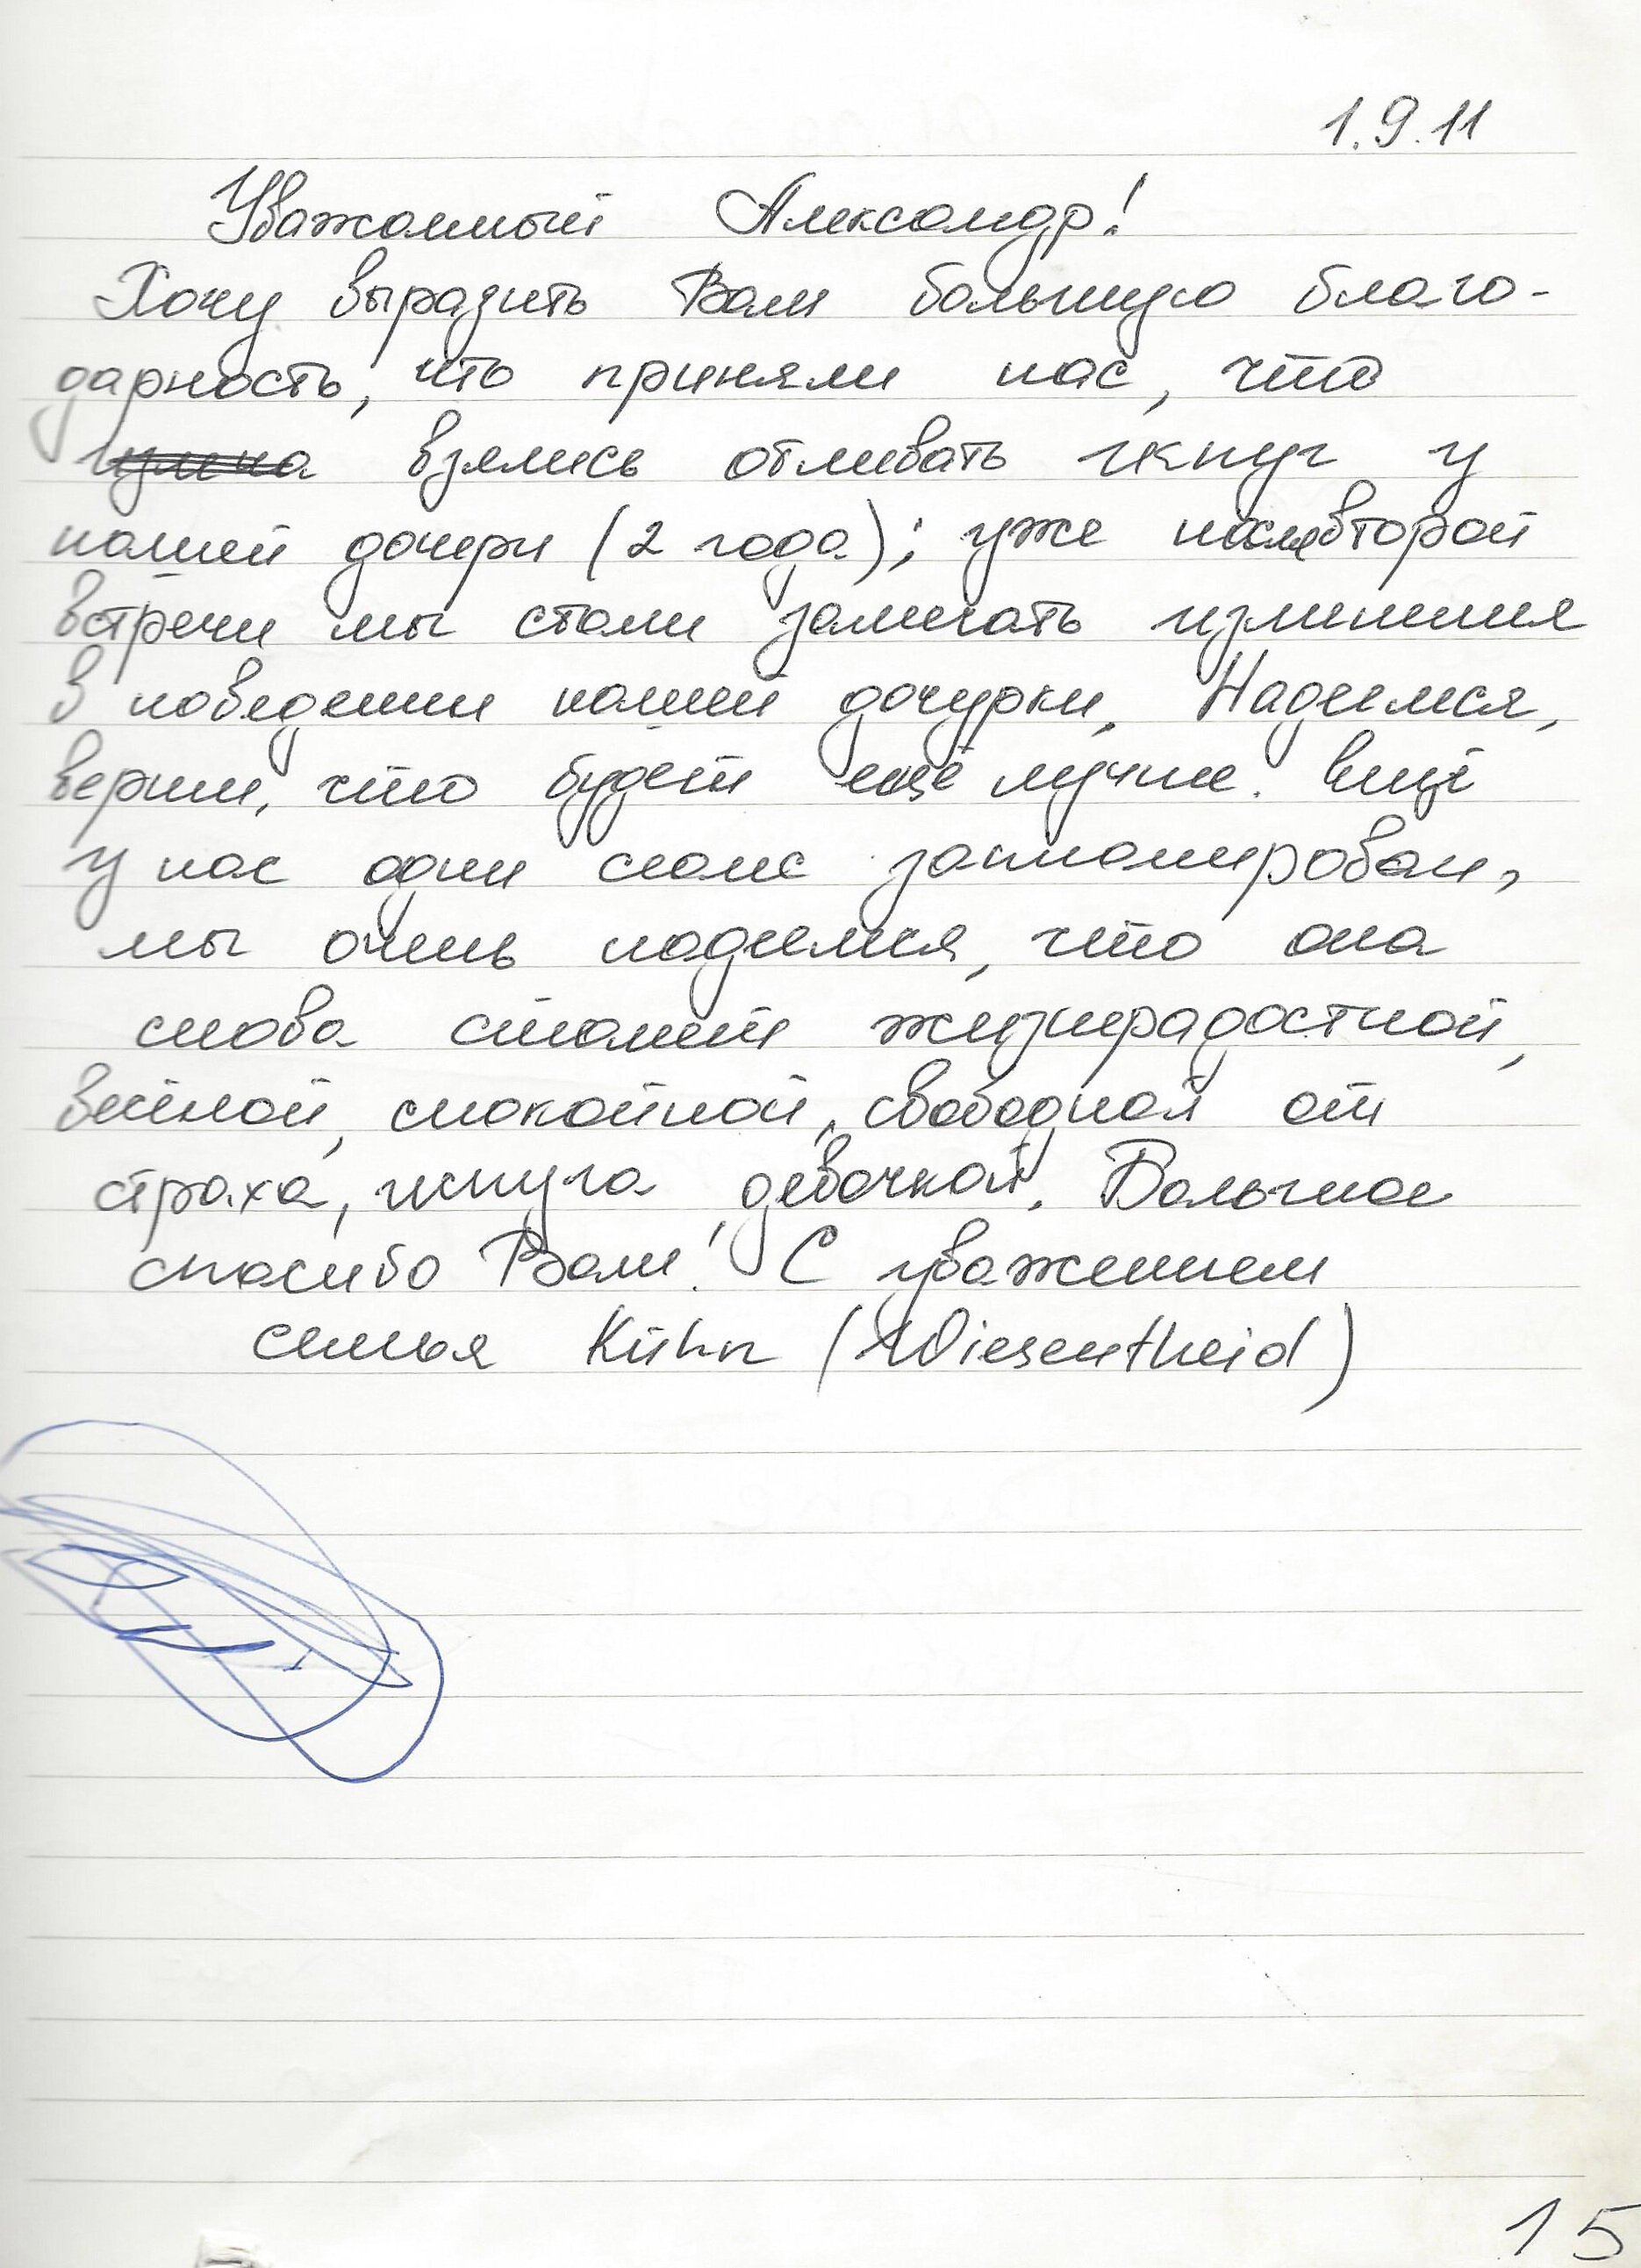 1.9.11
Уважаемый Александр!
Хочу выразить Вам большую благо-
дарность, что приняли нас, что
взялись отливать испуг у
нашей дочери (2 года); уже после второй
встречи мы стали замечать изменения
в поведении нашей дочурки. Надеемся,
верим, что будет ещё лучше. Ещё
у нас один сеанс запланирован,
мы очень надеемся, что она
снова станет жизнерадостной,
весёлой, спокойной, свободной от
страха, испуга девочкой. Большое
спасибо Вам! С уважением
семья Kühn (Wiesentheid)
15